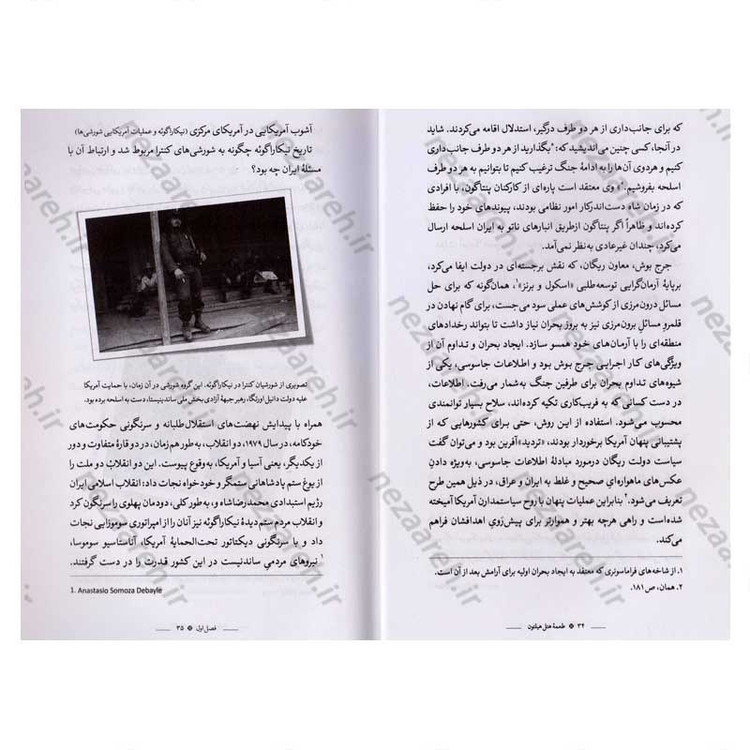 که برای جانب‌داری از هر دو طرف درگیر، استدلال اقامه می‌کردند. شاید
در آنجا، کسی چنین می‌اندیشید که: «بگذارید از هر دو طرف جانب‌داری
کنیم و هردوی آن‌ها را به ادامهٔ جنگ ترغیب کنیم تا بتوانیم به هر دو طرف
اسلحه بفروشیم.» وی معتقد است پاره‌ای از کارکنان پنتاگون، با افرادی
که در زمان شاه دست‌اندرکار امور نظامی بودند، پیوندهای خود را حفظ
کرده‌اند و ظاهراً اگر پنتاگون ازطریق انبارهای ناتو به ایران اسلحه ارسال
می‌کرد، چندان غیرعادی به‌نظر نمی‌آمد.
جرج بوش، معاون ریگان، که نقش برجسته‌ای در دولت ایفا می‌کرد،
برپایهٔ آرمان‌گرایی توسعه‌طلبی «اسکول و برنز»¹، همان‌گونه که برای حل
مسائل درون‌مرزی از کوشش‌های عملی سود می‌جست، برای گام نهادن در
قلمرو مسائل برون‌مرزی نیز به بروز بحران نیاز داشت تا بتواند رخدادهای
منطقه‌ای را با آرمان‌های خود همسو سازد. ایجاد بحران و تداوم آن از
ویژگی‌های کار اجرایی جرج بوش بود و اطلاعات جاسوسی، یکی از
شیوه‌های تداوم بحران برای طرفین جنگ به‌شمار می‌رفت. اطلاعات،
در دست کسانی که به فریب‌کاری تکیه کرده‌اند، سلاح بسیار توانمندی
محسوب می‌شود. استفاده از این روش، حتی برای کشورهایی که از
پشتیبانی پنهان آمریکا برخوردار بودند، «تردید»آفرین بود و می‌توان گفت
سیاست دولت ریگان درمورد مبادلهٔ اطلاعات جاسوسی، به‌ویژه دادن
عکس‌های ماهواره‌ای صحیح و غلط به ایران و عراق، در ذیل همین طرح
تعریف می‌شود.² بنابراین عملیات پنهان با روح سیاستمداران آمریکا آمیخته
شده‌است و راهی هرچه بهتر و هموارتر برای پیش‌رَویِ اهدافشان فراهم
می‌کند.
۱. از شاخه‌های فراماسونری که معتقد به ایجاد بحران اولیه برای آرامش بعد از آن است.
۲. همان، ص ۱۸۱.
۳۴ طعمهٔ هتل هیلتون
آشوب آمریکایی در آمریکای مرکزی (نیکاراگوئه و عملیات آمریکایی شورشی‌ها)
تاریخ نیکاراگوئه چگونه به شورشی‌های کنترا مربوط شد و ارتباط آن با
مسئلهٔ ایران چه بود؟
تصویری از شورشیان کنترا در نیکاراگوئه. این گروه شورشی در آن زمان، با حمایت آمریکا
علیه دولت دانیل اورتگا، رهبر جبههٔ آزادی بخش ملی ساندینیستا، دست به اسلحه برده بود.
همراه با پیدایش نهضت‌های استقلال‌طلبانه و سرنگونی حکومت‌های
خودکامه، در سال ۱۹۷۹، دو انقلاب، به‌طور هم زمان، در دو قارهٔ متفاوت و دور
از یکدیگر، یعنی آسیا و آمریکا، به‌وقوع پیوست. این دو انقلاب دو ملت را
از یوغ ستم پادشاهانی ستمگر و خودخواه نجات داد؛ انقلاب اسلامی ایران
رژیم استبدادی محمدرضاشاه و، به‌طور کلی، دودمان پهلوی را سرنگون کرد
و انقلاب مردم ستم دیدهٔ نیکاراگوئه نیز آنان را از امپراتوری سوموزایی نجات
داد و با سرنگونی دیکتاتور تحت‌الحمایهٔ آمریکا، آناستاسیو سوموسا،¹
نیروهای مردمی ساندنیست در این کشور قدرت را در دست گرفتند.
1. Anastasio Somoza Debayle
فصل اول ۳۵
nezaareh.ir